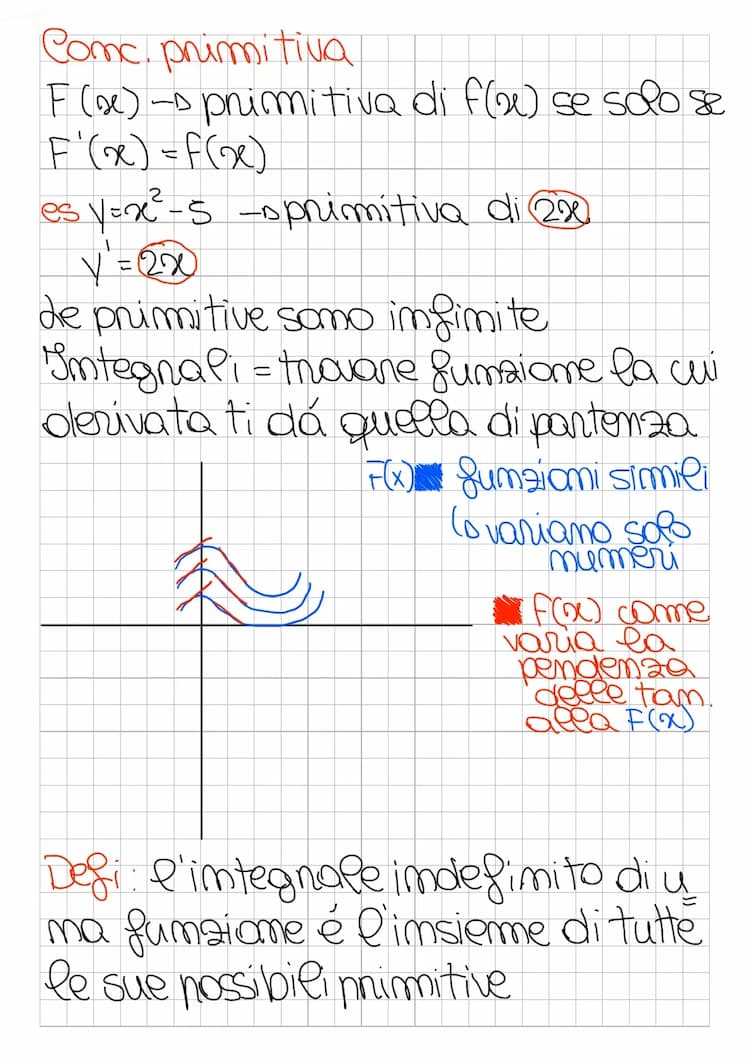 Conc. primitiva
F(x) → primitiva di f(x) se solo se
F'(x) = f(x)
es y=x²-5 → primitiva di 2x
y' = 2x
Le primitive sono infinite
Integrali = trovare funzione la cui
derivata ti dá quella di partenza
F(x) funzioni simili
↳ variano solo
numeri
f(x) come
varia la
pendenza
delle tan.
alla F(x)
Defi: l'integrale indefinito di u
ma funzione é l'insieme di tutte
le sue possibili primitive